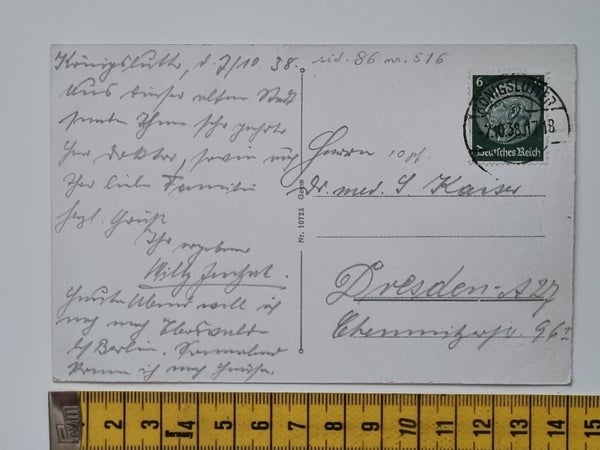 Königslutter, d. 7/10.38.
sid. 86 nr. 516
Aus dieser alten Stadt
senden Ihnen sehr geehrter
Herr Doktor, sowie
Ihrer lieben Familie
herzl. Grüße
Ihr ergebener
Willy
Heute Abend will ich
noch nach Eberswalde
b/ Berlin. Sonnabend
komme ich nach Hause.
Nr. 10725
6
KÖNIGSLUTTER
7.10.38.17-18
Deutsches Reich
Herrn
10 pf.
Dr. med. S. Kaiser
Dresden-A27
Chemnitzerstr. 96
2 3 4 5 6 7 8 9 10 11 12 13 14 15
Germany